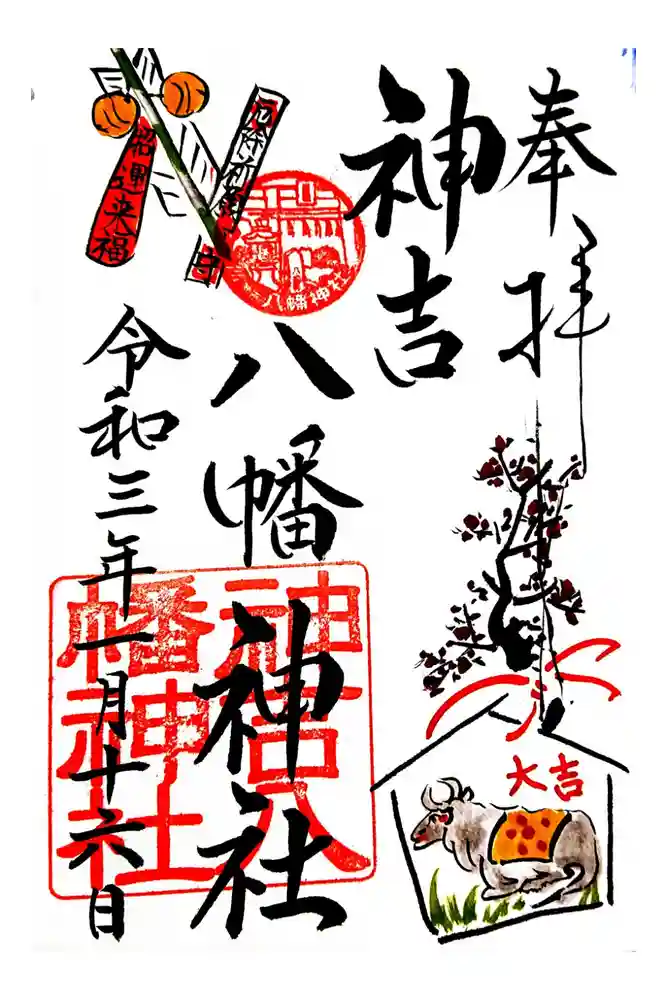 奉拝
大吉
神吉
八幡神社
神吉八
幡神社
八幡神社
令和三年一月十六日
招運来福